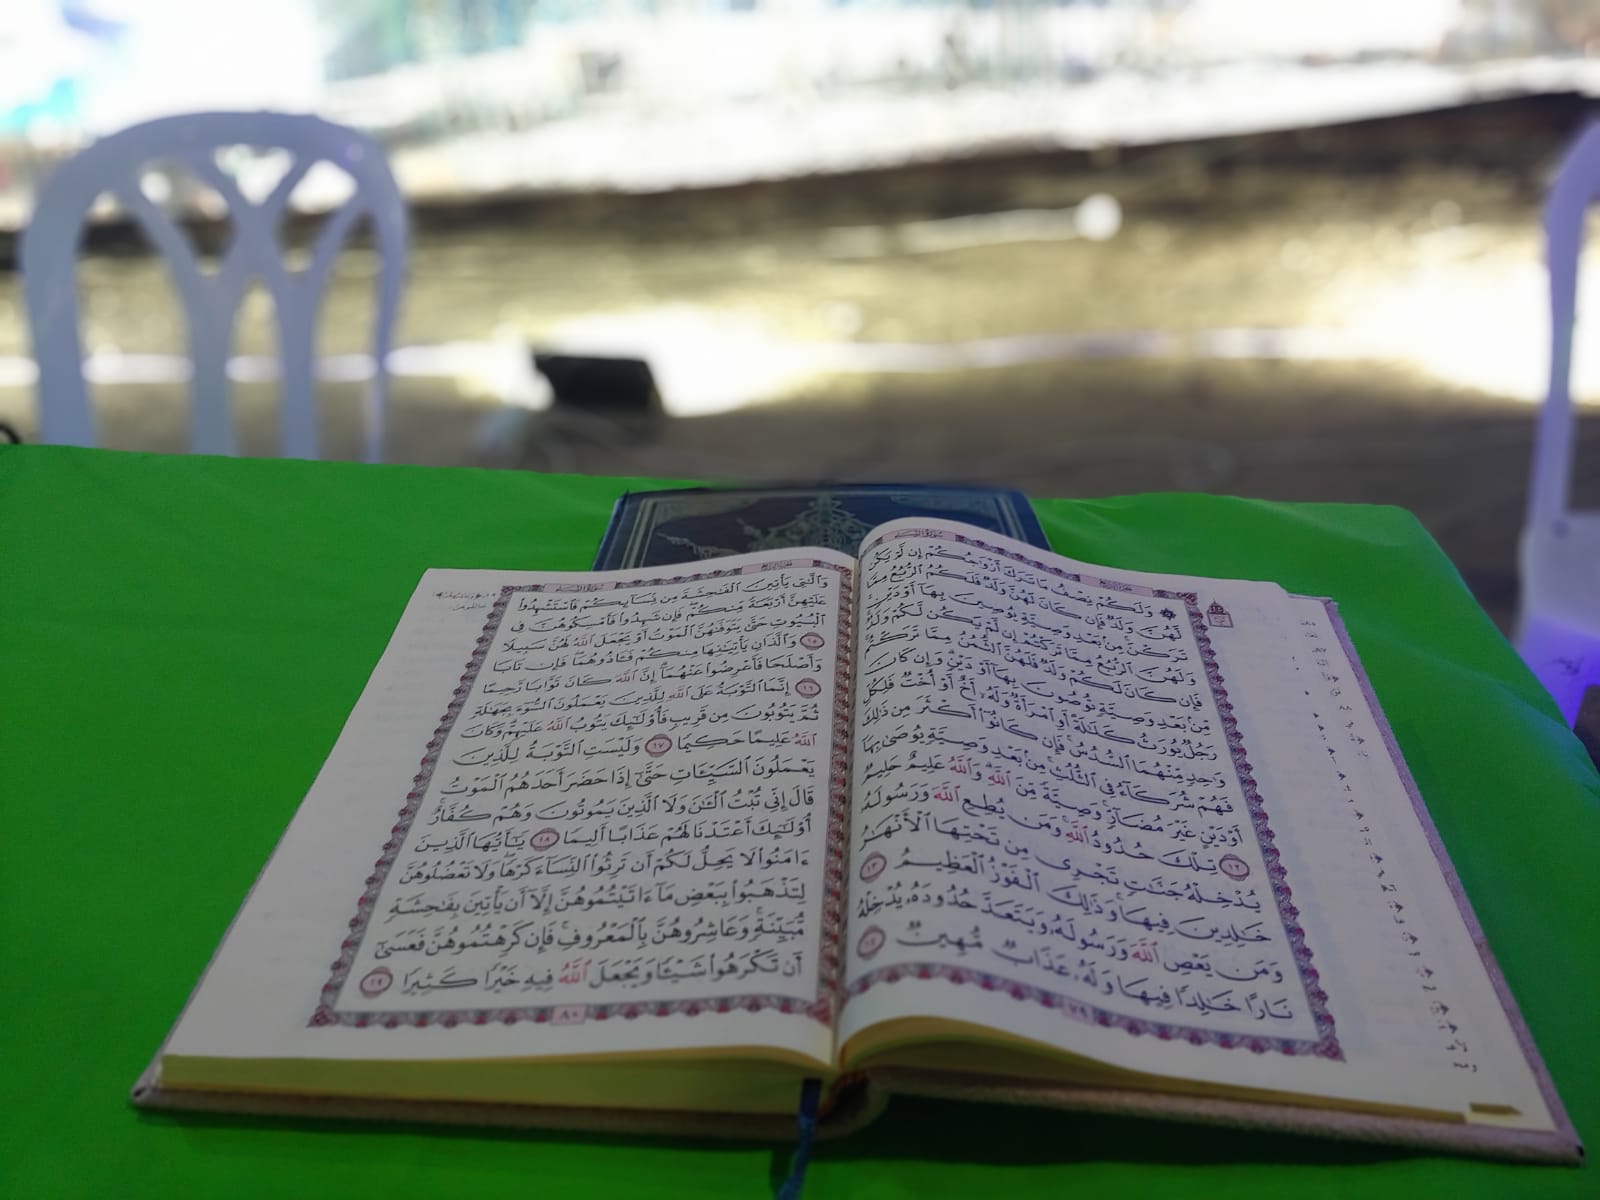 سورة النساء
۞ وَلَكُمْ نِصْفُ مَا تَرَكَ أَزْوَٰجُكُمْ إِن لَّمْ يَكُن
لَّهُنَّ وَلَدٌ فَإِن كَانَ لَهُنَّ وَلَدٌ فَلَكُمُ ٱلرُّبُعُ مِمَّا
تَرَكْنَ مِنۢ بَعْدِ وَصِيَّةٍ يُوصِينَ بِهَآ أَوْ دَيْنٍ
وَلَهُنَّ ٱلرُّبُعُ مِمَّا تَرَكْتُمْ إِن لَّمْ يَكُن لَّكُمْ وَلَدٌ
فَإِن كَانَ لَكُمْ وَلَدٌ فَلَهُنَّ ٱلثُّمُنُ مِمَّا تَرَكْتُم
مِّنۢ بَعْدِ وَصِيَّةٍ تُوصُونَ بِهَآ أَوْ دَيْنٍ وَإِن كَانَ
رَجُلٌ يُورَثُ كَلَٰلَةً أَوِ ٱمْرَأَةٌ وَلَهُۥٓ أَخٌ أَوْ أُخْتٌ فَلِكُلِّ
وَٰحِدٍ مِّنْهُمَا ٱلسُّدُسُ فَإِن كَانُوٓا۟ أَكْثَرَ مِن ذَٰلِكَ
فَهُمْ شُرَكَآءُ فِى ٱلثُّلُثِ مِنۢ بَعْدِ وَصِيَّةٍ يُوصَىٰ بِهَآ
أَوْ دَيْنٍ غَيْرَ مُضَآرٍّ وَصِيَّةً مِّنَ ٱللَّهِ وَٱللَّهُ عَلِيمٌ حَلِيمٌ
١٢ تِلْكَ حُدُودُ ٱللَّهِ وَمَن يُطِعِ ٱللَّهَ وَرَسُولَهُۥ
يُدْخِلْهُ جَنَّٰتٍ تَجْرِى مِن تَحْتِهَا ٱلْأَنْهَٰرُ
خَٰلِدِينَ فِيهَا وَذَٰلِكَ ٱلْفَوْزُ ٱلْعَظِيمُ ١٣
وَمَن يَعْصِ ٱللَّهَ وَرَسُولَهُۥ وَيَتَعَدَّ حُدُودَهُۥ يُدْخِلْهُ
نَارًا خَٰلِدًا فِيهَا وَلَهُۥ عَذَابٌ مُّهِينٌ ١٤
٧٩
سورة النساء
وَٱلَّٰتِى يَأْتِينَ ٱلْفَٰحِشَةَ مِن نِّسَآئِكُمْ فَٱسْتَشْهِدُوا۟
عَلَيْهِنَّ أَرْبَعَةً مِّنكُمْ فَإِن شَهِدُوا۟ فَأَمْسِكُوهُنَّ فِى
ٱلْبُيُوتِ حَتَّىٰ يَتَوَفَّىٰهُنَّ ٱلْمَوْتُ أَوْ يَجْعَلَ ٱللَّهُ لَهُنَّ سَبِيلًا
١٥ وَٱلَّذَانِ يَأْتِيَٰنِهَا مِنكُمْ فَـَٔاذُوهُمَا فَإِن تَابَا
وَأَصْلَحَا فَأَعْرِضُوا۟ عَنْهُمَآ إِنَّ ٱللَّهَ كَانَ تَوَّابًا رَّحِيمًا
١٦ إِنَّمَا ٱلتَّوْبَةُ عَلَى ٱللَّهِ لِلَّذِينَ يَعْمَلُونَ ٱلسُّوٓءَ بِجَهَٰلَةٍ
ثُمَّ يَتُوبُونَ مِن قَرِيبٍ فَأُو۟لَٰٓئِكَ يَتُوبُ ٱللَّهُ عَلَيْهِمْ وَكَانَ
ٱللَّهُ عَلِيمًا حَكِيمًا ١٧ وَلَيْسَتِ ٱلتَّوْبَةُ لِلَّذِينَ
يَعْمَلُونَ ٱلسَّيِّـَٔاتِ حَتَّىٰٓ إِذَا حَضَرَ أَحَدَهُمُ ٱلْمَوْتُ
قَالَ إِنِّى تُبْتُ ٱلْـَٰٔنَ وَلَا ٱلَّذِينَ يَمُوتُونَ وَهُمْ كُفَّارٌ
أُو۟لَٰٓئِكَ أَعْتَدْنَا لَهُمْ عَذَابًا أَلِيمًا ١٨ يَٰٓأَيُّهَا ٱلَّذِينَ
ءَامَنُوا۟ لَا يَحِلُّ لَكُمْ أَن تَرِثُوا۟ ٱلنِّسَآءَ كَرْهًا وَلَا تَعْضُلُوهُنَّ
لِتَذْهَبُوا۟ بِبَعْضِ مَآ ءَاتَيْتُمُوهُنَّ إِلَّآ أَن يَأْتِينَ بِفَٰحِشَةٍ
مُّبَيِّنَةٍ وَعَاشِرُوهُنَّ بِٱلْمَعْرُوفِ فَإِن كَرِهْتُمُوهُنَّ فَعَسَىٰٓ
أَن تَكْرَهُوا۟ شَيْـًٔا وَيَجْعَلَ ٱللَّهُ فِيهِ خَيْرًا كَثِيرًا ١٩
٨٠